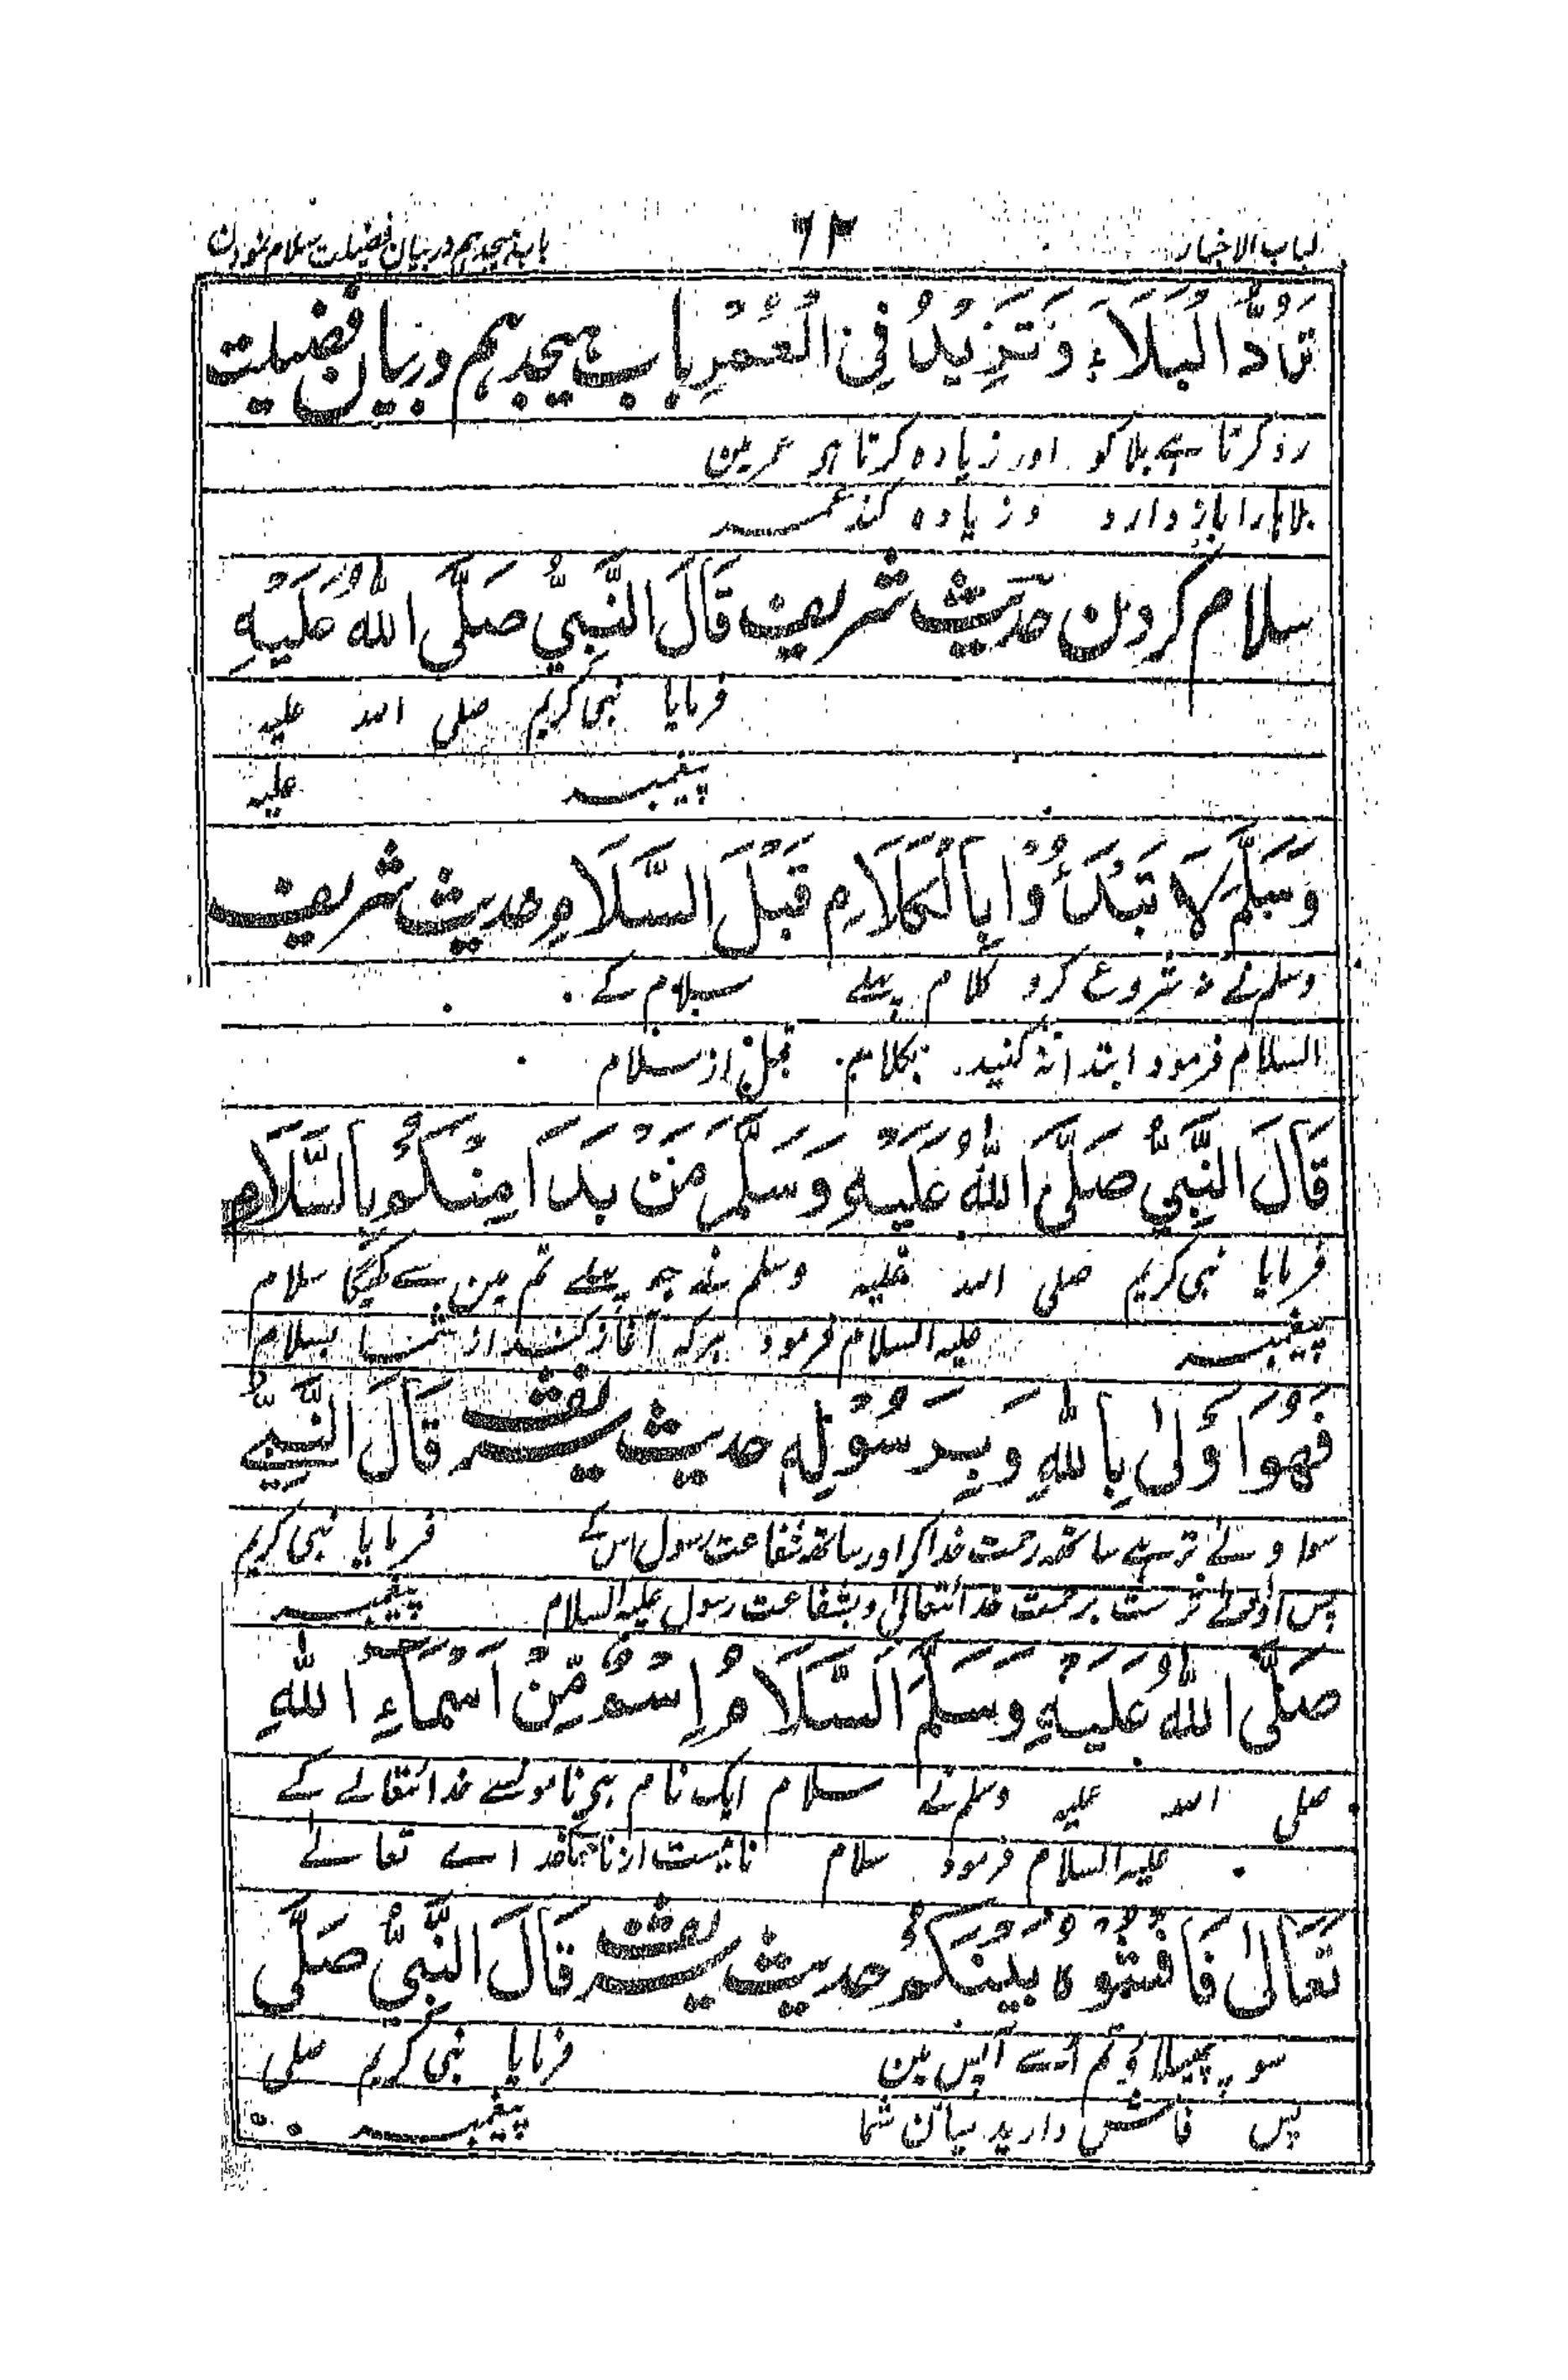 لباب الاخبار ٦٣ باب هیجدهم در بیان فضیلت سلام نمودن
تَرُدُّ الْبَلَاءَ وَتَزِيْدُ فِی الْعُمُرِ باب هیجدهم در بیان فضیلت
رد کرتا ہے بلا کو اور زیادہ کرتا ہی عمر مین
بلاہارا باز دارد و زیادہ کند عمر
سلام کردن حدیث شریف قَالَ النَّبِيُّ صَلَّى اللهُ عَلَيْهِ
فرمایا نبی کریم صلی اللہ علیہ
پیغمبر علیہ
وَسَلَّمَ لَا تَبْدَأُوْا بِالْكَلَامِ قَبْلَ السَّلَامِ حدیث شریف
وسلم نے نہ شروع کرو کلام پہلے سلام کے
السلام فرمود ابتدا نہ کنید بکلام قبل از سلام
قَالَ النَّبِيُّ صَلَّى اللهُ عَلَيْهِ وَسَلَّمَ مَنْ بَدَا مِنْكُمْ بِالسَّلَامِ
فرمایا نبی کریم صلی اللہ علیہ وسلم نے جو پہلے تم مین سے کہیگا سلام
پیغمبر علیہ السلام فرمود ہرکہ آغاز کند از شما بسلام
فَهُوَ اَوْلٰى بِاللهِ وَبِرَسُوْلِهٖ حدیث شریف قَالَ النَّبِيُّ
سو اولے تر ہے ساتھ رحمت خدا کر اور ساتھ شفاعت رسول اس کے فرمایا نبی کریم
پس اولے ترست برحمت خدا تعالی و بشفاعت رسول علیہ السلام پیغمبر
صَلَّى اللهُ عَلَيْهِ وَسَلَّمَ اَلسَّلَامُ اِسْمٌ مِّنْ اَسْمَاءِ اللهِ
صلی اللہ علیہ وسلم نے سلام ایک نام ہی نامونسے خدا تعالے کے
علیہ السلام فرمود سلام نامیست از نامہا خداے تعالے
تَعَالٰى فَافْشُوْهُ بَيْنَكُمْ حدیث شریف قَالَ النَّبِيُّ صَلَّى
سو پھیلاؤ تم اُسے آپس مین فرمایا نبی کریم صلی
پس فاش دارید میان شما پیغمبر